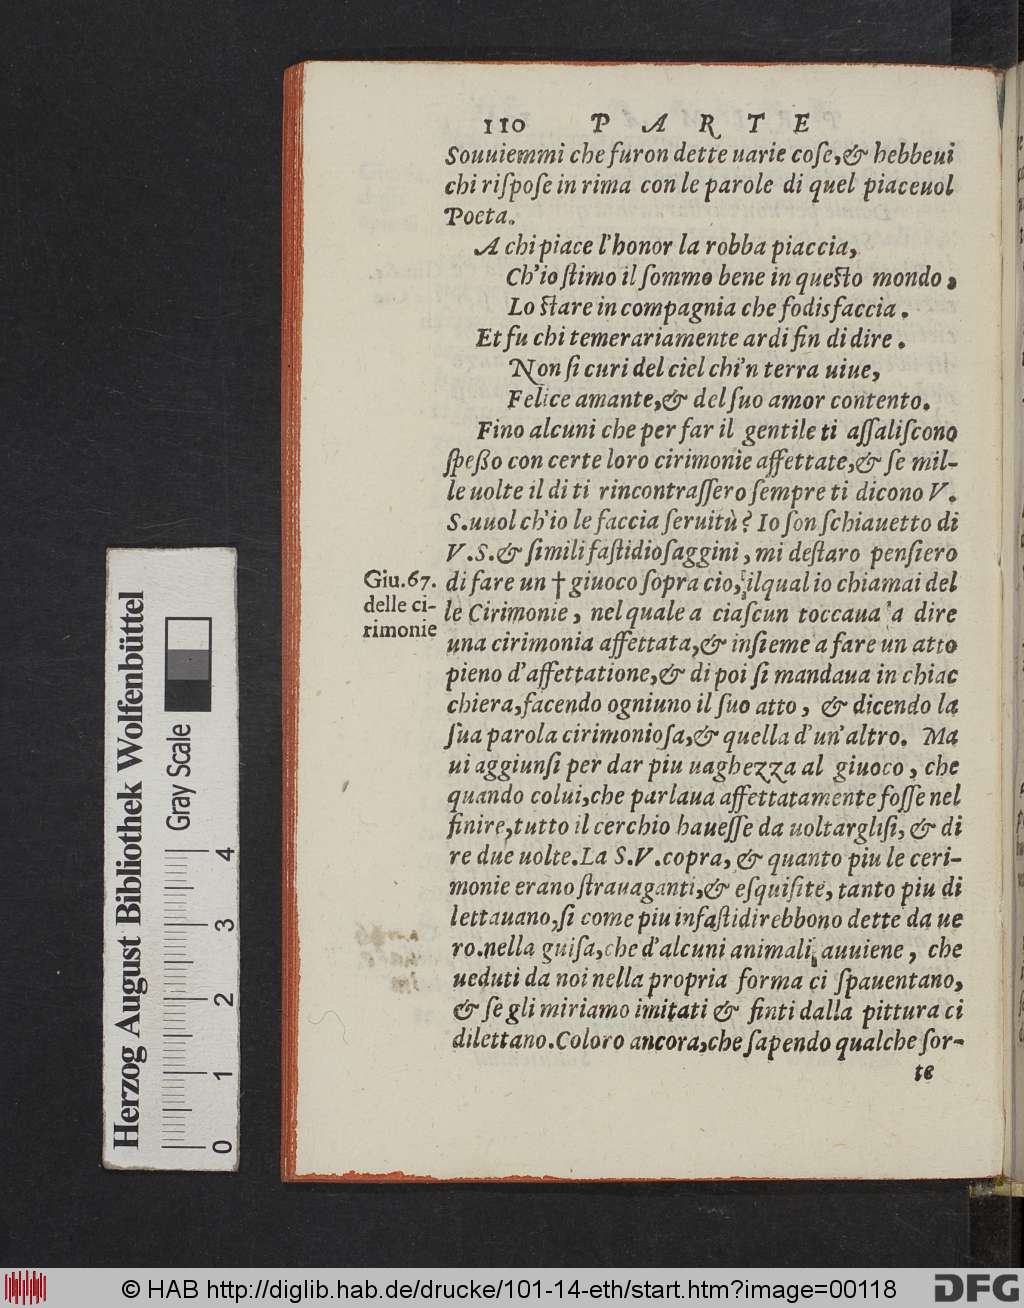 110 PARTE
Souuiemmi che furon dette uarie coſe,& hebbeui
chi riſpoſe in rima con le parole di quel piaceuol
Poeta.
A chi piace l'honor la robba piaccia,
Ch'io ſtimo il ſommo bene in queſto mondo,
Lo ſtare in compagnia che ſodisfaccia.
Et fu chi temerariamente ardi fin di dire.
Non ſi curi del ciel chi'n terra uiue,
Felice amante,& del ſuo amor contento.
Fino alcuni che per far il gentile ti aſſaliſcono
ſpeßo con certe loro cirimonie affettate,& ſe mil-
le uolte il di ti rincontraſſero ſempre ti dicono V.
S.uuol ch'io le faccia ſeruitù? Io ſon ſchiauetto di
V.S.& ſimili faſtidioſaggini, mi deſtaro penſiero
Giu.67. di fare un † giuoco ſopra cio, ilqual io chiamai del
delle ci- le Cirimonie, nel quale a ciaſcun toccaua a dire
rimonie una cirimonia affettata,& inſieme a fare un atto
pieno d'affettatione,& di poi ſi mandaua in chiac
chiera,facendo ogniuno il ſuo atto, & dicendo la
ſua parola cirimonioſa,& quella d'un'altro. Ma
ui aggiunſi per dar piu uaghezza al giuoco, che
quando colui,che parlaua affettatamente foſſe nel
finire,tutto il cerchio haueſſe da uoltargliſi, & di
re due uolte.La S.V.copra, & quanto piu le ceri-
monie erano ſtrauaganti,& eſquiſite, tanto piu di
lettauano,ſi come piu infaſtidirebbono dette da ue
ro.nella guiſa,che d'alcuni animali auuiene, che
ueduti da noi nella propria forma ci ſpauentano,
& ſe gli miriamo imitati & finti dalla pittura ci
dilettano.Coloro ancora,che ſapendo qualche ſor-
te
Herzog August Bibliothek Wolfenbüttel
Gray Scale
0 1 2 3 4
© HAB http://diglib.hab.de/drucke/101-14-eth/start.htm?image=00118
DFG